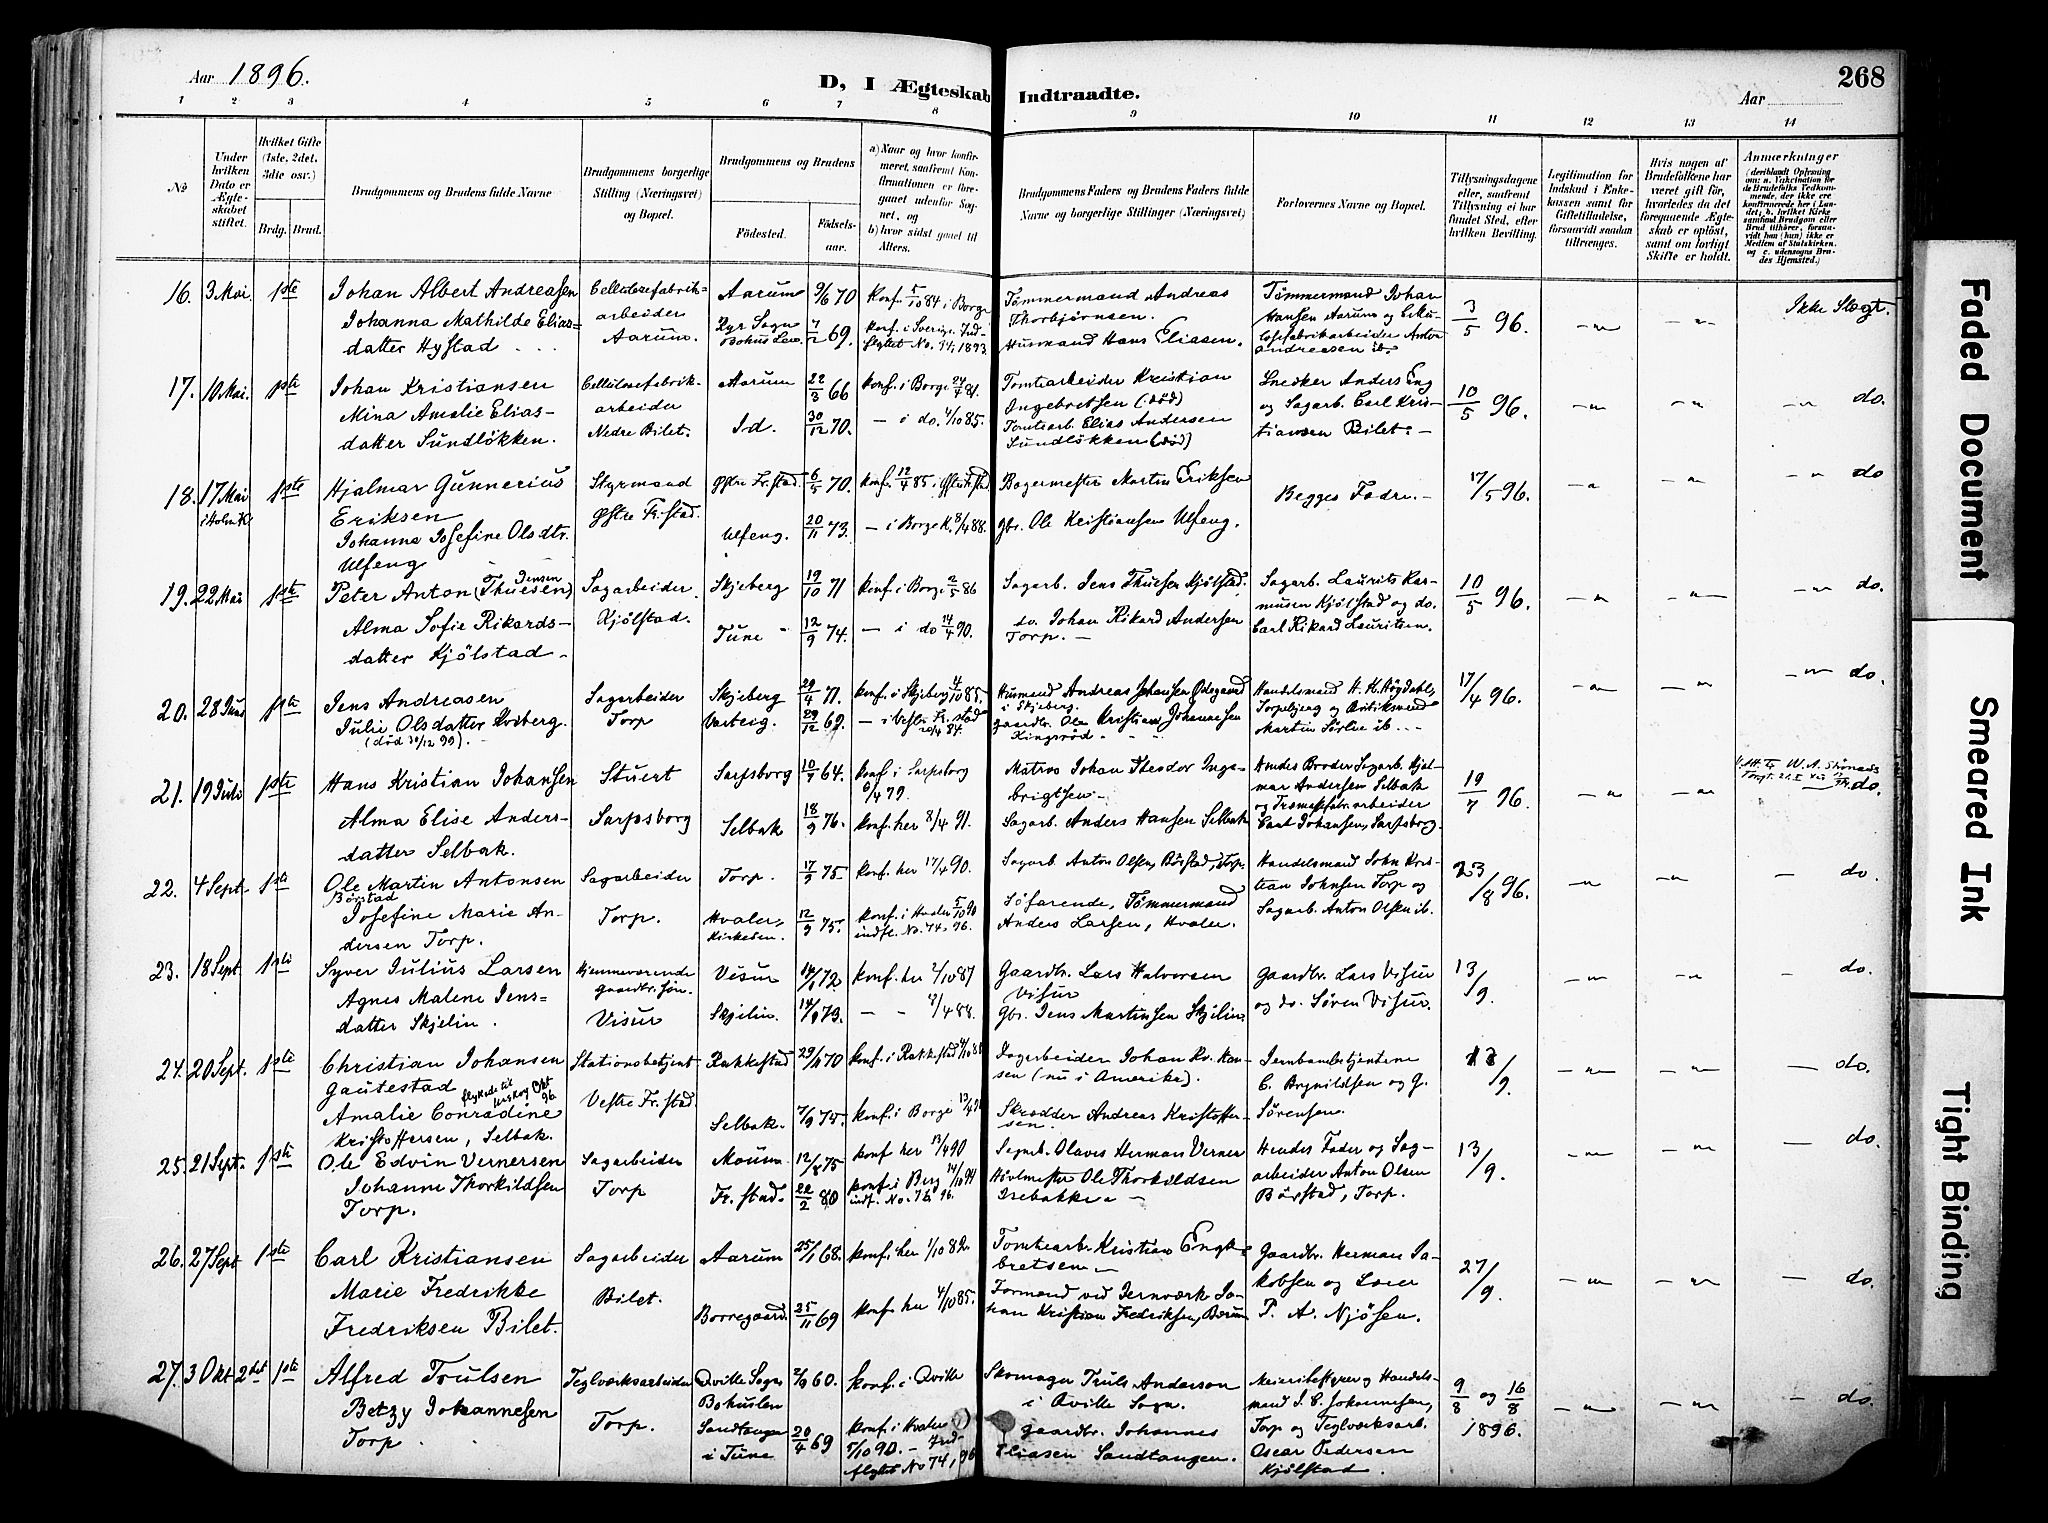 Aar 1896.
D, I Ægteskab Indtraadte.
Aar
268
1 2 3 4 5 6 7 8 9 10 11 12 13 14
No
Under hvilken Dato er Ægteskabet stiftet.
Hvilket Gifte (1ste, 2det, 3die osv.)
Brdg. Brud.
Brudgommens og Brudens fulde Navne
Brudgommens borgerlige Stilling (Næringsvei) og Bopæl.
Brudgommens og Brudens
Fødested. Fødselsaar.
a) Naar og hvor konfirmeret, saafremt Konfirmationen er foregaaet udenfor Sognet, og
b) hvor sidst gaaet til Alters.
Brudgommens Faders og Brudens Faders fulde Navne og borgerlige Stillinger (Næringsvei)
Forlovernes Navne og Bopæl.
Tillysningsdagene eller, saafremt Tillysning ei har fundet Sted, efter hvilken Bevilling.
Legitimation for Indskud i Enkekassen samt for Giftetilladelse, forsaavidt saadan tiltrænges.
Hvis nogen af Brudefolkene har været gift før, hvorledes det foregaaende Ægteskab er opløst, samt om lovligt Skifte er holdt.
Anmærkninger
(deriblandt Oplysning om: a. Vakcination for de Brudefolks Vedkommende, der ikke ere konfirmerede her i Landet; b. hvilket Kirkesamfund Brudgom eller Brud tilhører, forsaavidt han (hun) ikke er Medlem af Statskirken, og c. udensogns Brudes Hjemsted.)
16. 3 Mai. 1ste Johan Albert Andreasen Cellulosefabrik- Aarum 9/6 70 Konf. 5/10 84 i Borge Tømmermand Andreas Tømmermand Johan 3/5 96. Ikke Slægt.
Johanna Mathilde Elias- arbeider Thorbjørnsen. Hansen Aarum og Cellu-
datter Hystad Aarum. Bohus Len 7/2 69. konf. i Sverige. Ind- Husmand Hans Eliasen. losefabrikarbeider Anton
flyttet No. 34, 1893. Andreasen ib.
17. 10 Mai. 1ste Johan Kristiansen Cellulosefabrik- Aarum 22/3 66 konf. i Borge Tomtearbeider Kristian Snedker Anders Eng 10/5 96. do.
Mina Amalie Elias- arbeider Ingebretsen (død) og Sagarb. Carl Kris-
datter Sundløkken. Nedre Bilet. Id. 30/12 70. - i do. 4/10 85. Tomtearb. Elias Andersen tiansen Bilet.
Sundløkken (død)
18. 17 Mai 1ste Hjalmar Gunnerius Styrmand Østre Fr.stad. 6/5 70. konf. 12/4 85 i Østre Fr.stad Bagermester Martin Eriksen Begges Fædre. 17/5 96. do
Eriksen Østre Fr.stad.
Johanna Josefine Olsdtr. Ulfeng. 20/11 73. - i Borge K. 8/4 88. gbr. Ole Kristiansen Ulfeng.
Ulfeng
19. 22 Mai 1ste Peter Anton Jensen (Thuesen) Sagarbeider Skjeberg 19/10 71 konf. i Borge 2/5 86 Sagarb. Jens Thuesen Kjølstad. Sagarb. Laurits Ras- 10/5 96. do.
Alma Sofie Rikards- Kjølstad. Tune 12/9 74. - i do 14/4 90. do. Johan Rikard Andersen musen Kjølstad og do.
datter Kjølstad Torp. Carl Rikard Lauritsen.
20. 28 Juni 1ste Jens Andreasen Sagarbeider Skjeberg 29/4 71. konf. i Skjeberg 4/10 85. Husmand Andreas Johansen Ødegaard Handelsmand H. K. Høgdahl, 17/4 96. do.
Julie Olsdatter Kroberg. Torp Varteig. 29/12 69. - i Vestre Fr.stad 20/4 84. i Skjeberg. Torpebjerg og
(død 30/12 99). gaardbr. Ole Kristian Johannesen Martin Sørlie ib.
Kingsrød
21. 19 Juli 1ste Hans Kristian Johansen Stuert Sarpsborg 10/7 64. konf. i Sarpsborg 6/4 79. Matros Johan Theodor Inge- Hendes Broder Sagarb. Hjal- 19/7 96 do.
brigtsen. mar Andersen Selbak
Alma Elise Anders- Sarpsborg Selbak 18/9 76. konf. her 8/4 91. Sagarb. Anders Hansen Selbak og Træmassefabr.arbeider
datter Selbak. Carl Johansen, Sarpsborg.
22. 4 Sept. 1ste Ole Martin Antonsen Sagarbeider Torp. 17/9 75 konf. her 17/4 90. Sagarb. Anton Olsen, Børstad, Torp. Handelsmand John Kris- 23/8 96. do.
Børstad tian Johnsen Torp og
Josefine Marie An- Torp. Hvaler, 12/9 75. konf. i Hvaler 5/10 90 Søfarende, Tømmermand Sagarb. Anton Olsen ib.
dersen Torp. Kirkeøen. indfl. No. 74, 96. Anders Larsen, Hvaler.
23. 18 Sept 1ste Syver Julius Larsen Hjemmeværende Visur 14/1 72 konf. her 2/10 87 Gaardbr. Lars Halvorsen Gaardbr. Lars Visur 13/9. do.
Agnes Malene Jens- gaardbr. søn. Visur og do. Søren Visur.
datter Skjelin. Visur Skjelin. 14/1 73. - - 8/4 88. Gbr. Jens Martinsen Skjelin.
24. 20 Sept. 1ste Christian Johansen Stationsbetjent Rakkestad 29/11 70 konf. i Rakkestad Dagarbeider Johan Kr. Han- Jernbanebetjentene 13/9. do.
Gautestad sen (nu i Amerika). C. Brynildsen og G.
Amalie Conradine Vestre Fr.stad. Selbak. 7/9 75. konf. i Borge Skrædder Andreas Kristoffer- Sørensen.
Kristoffersen, Selbak. sen.
25. 21 Sept. 1ste Ole Edvin Vernersen Sagarbeider Moum. 12/8 75 konf her 13/4 90 Sagarb. Olavis Herman Verner Hendes Fader og Sag- 13/9. do.
Johanne Thorkildsen Torp Fr.stad. 22/2 80 konf. i Berg 14/10 94 Høvlmester Ole Thorkildsen arbeider Anton Olsen
Torp. indf. No. 76, 96. Isebakke. Børstad, Torp.
26. 27 Sept 1ste Carl Kristiansen Sagarbeider Aarum 25/1 68. konf. her 1/10 82. Tomtearb. Kristian Enge- Gaardbr. Herman Ja- 27/9. do.
bretsen. kobsen og Lærer
Marie Fredrikke Bilet. Borregaard. 25/11 69 konf. her 4/10 85. Formand ved Jernværk Jo- P. A. Njøsen.
Fredriksen Bilet. han Kristian Fredriksen, Bærum
27. 3 Okt 2det 1ste Alfred Trulsen Teglværksarbeider Qville Sogn 2/9 60. konf. i Qville Skomager Truls Anderson Meieribestyrer og Handels- 9/8 og 16/8 1896. do.
Bohuslen i Qville Sogn. mand J. E. Johannesen,
Betzy Johannesen Torp. Sandtangen 20/4 69 konf. i Hvaler 5/10 90. - Ind- gaardbr. Johannes Torp og Teglværksarb.
Torp i Tune flyttet No 74, 96 Eliasen Sandtangen. Oscar Pedersen
Kjølstad.
Faded Document
Smeared Ink
Tight Binding